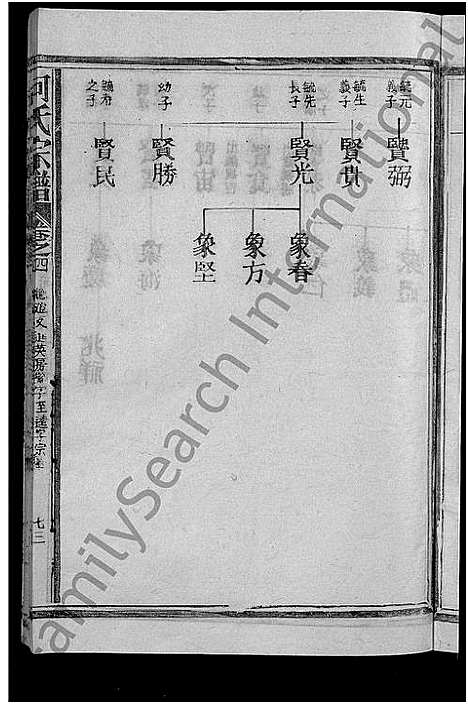 毓元
義子
賢弼
毓生
義子
賢貴
毓先
長子
賢光
幼子
賢勝
之子
賢民
象春
象方
象堅
何氏宗譜
卷之四
七三
FamilySearch International